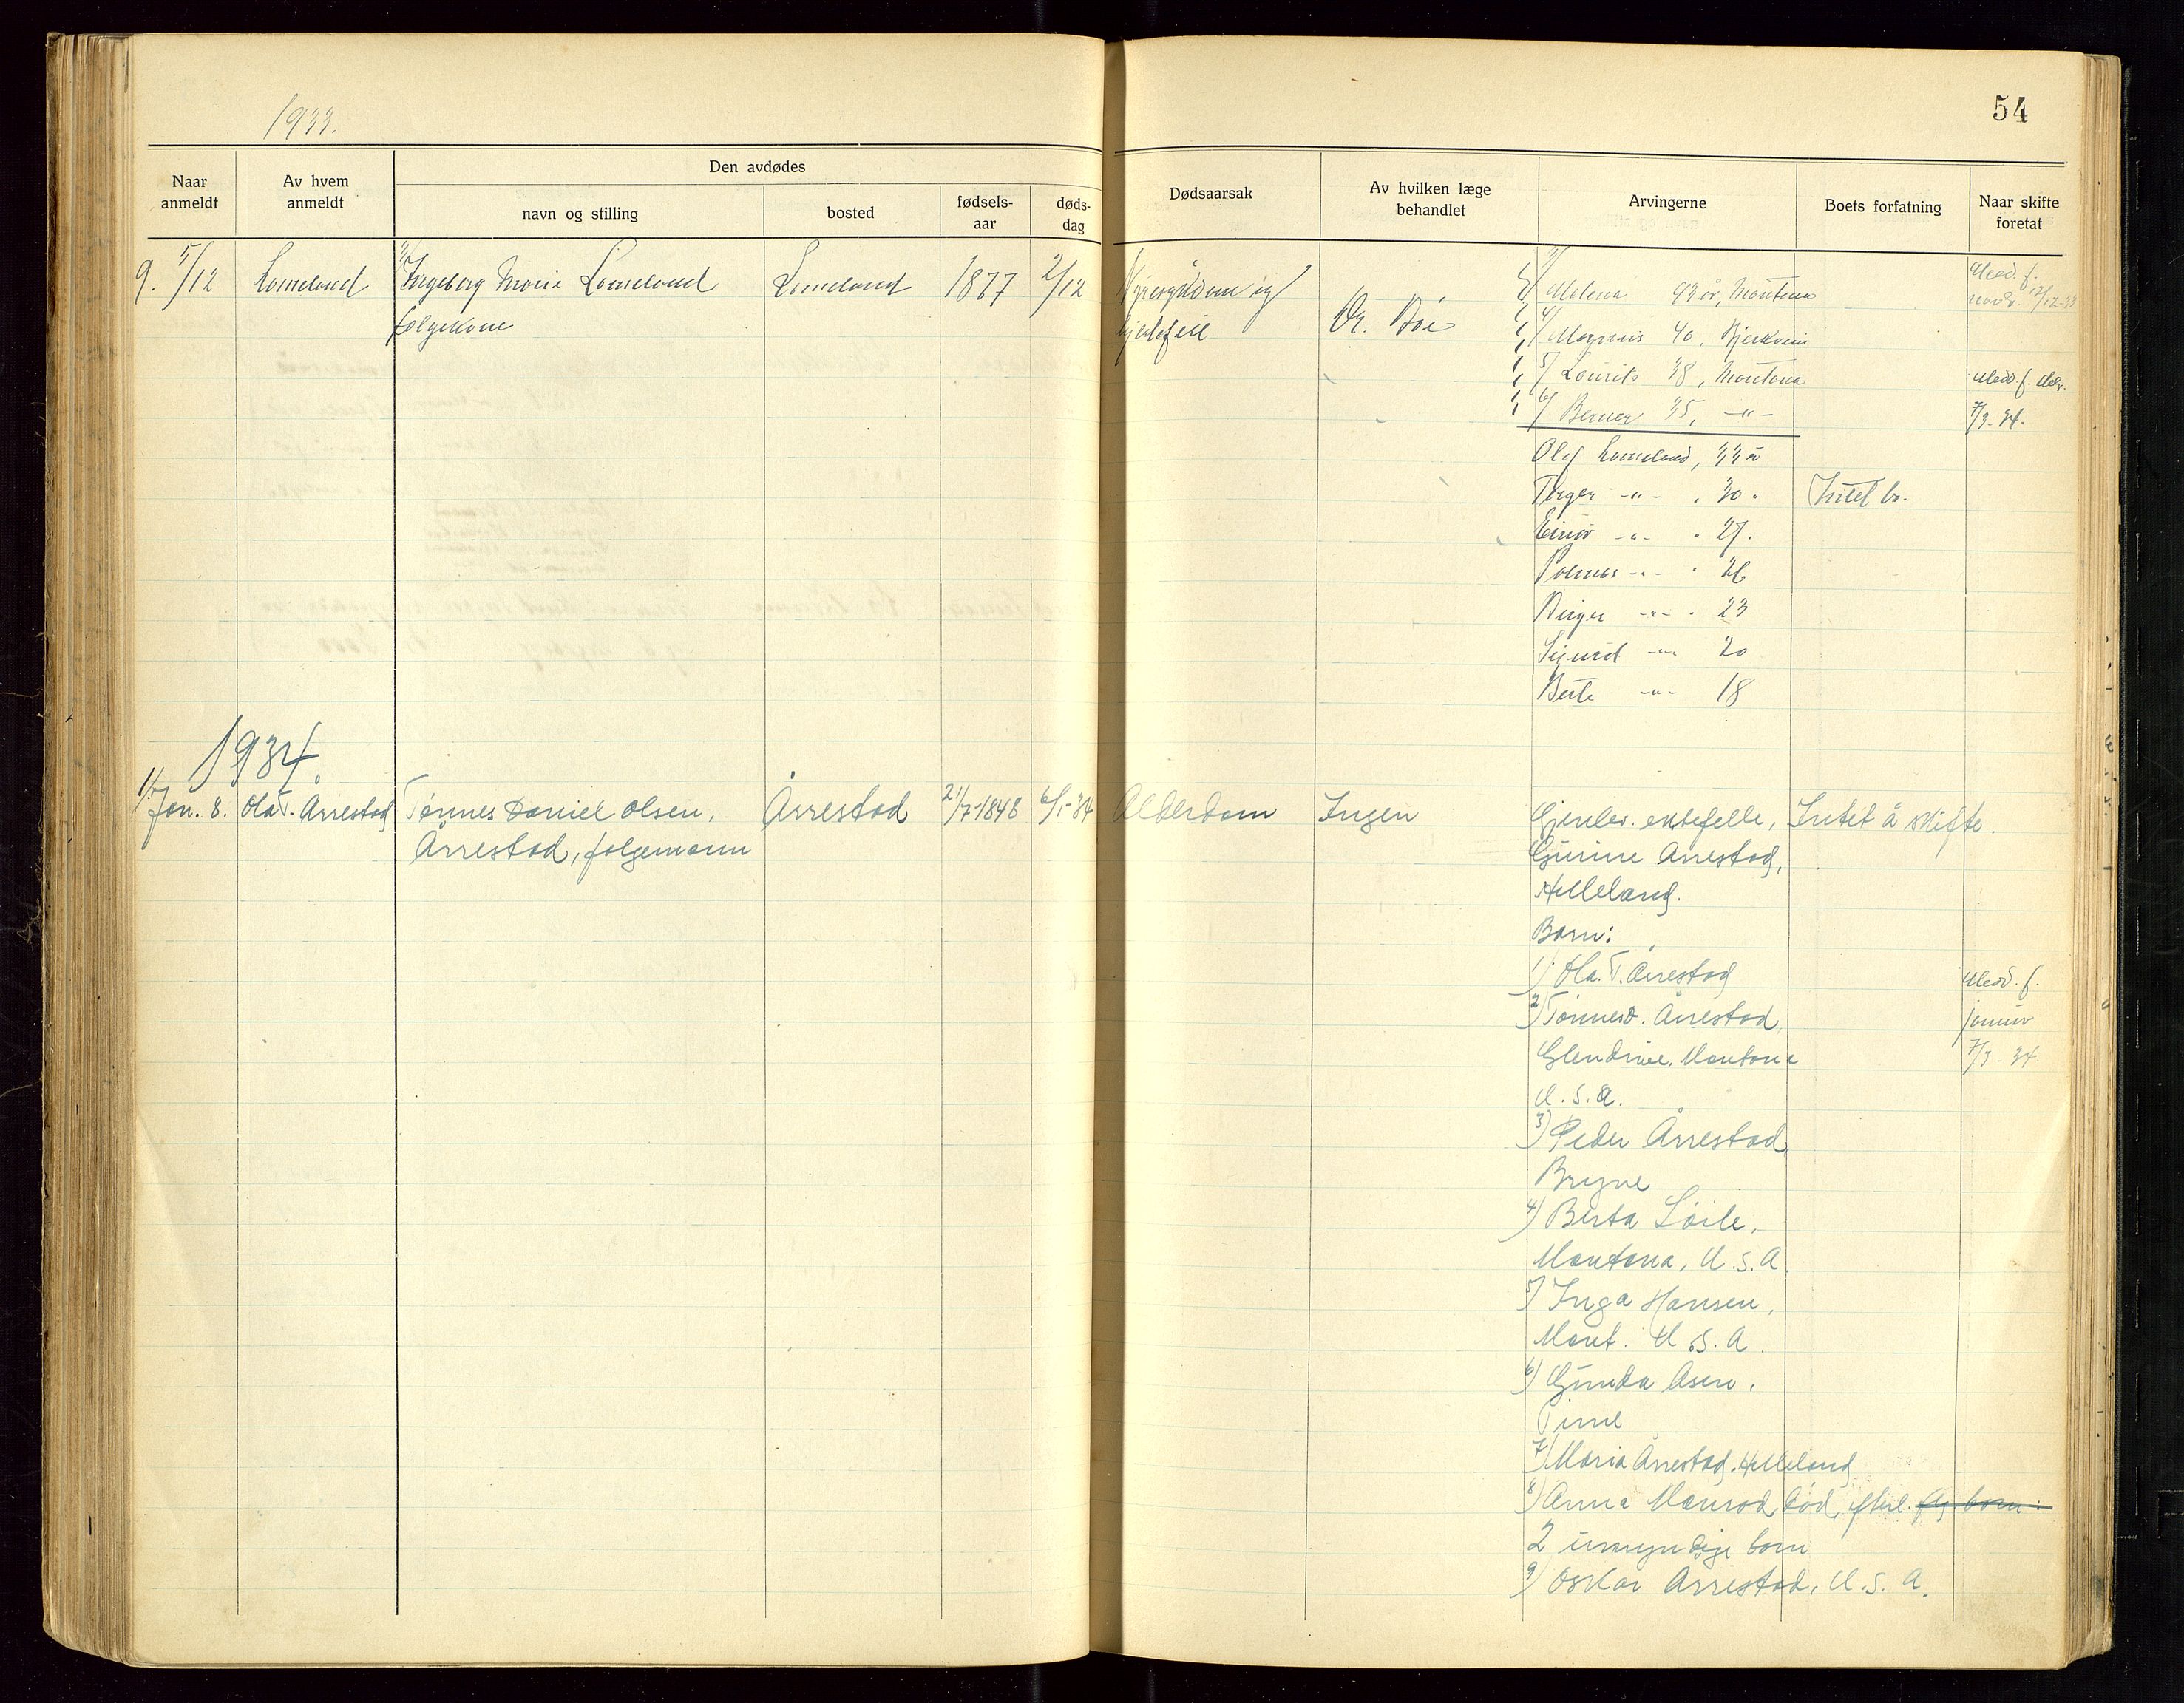 1933.
54
Naar anmeldt
Av hvem anmeldt
Den avdødes
navn og stilling
bosted
fødsels-aar
døds-dag
Dødsaarsak
Av hvilken læge behandlet
Arvingerne
Boets forfatning
Naar skifte foretat
9. 5/12 Lomeland
Ingeborg Marie Lomeland
folgekone
Lomeland
1877
2/12
Nyresykdom og
hjertefeil
Dr. Bøe
Malena 43 år, Montana
4/ Magnus 40, Bjerkreim
5/ Laurits 38, Montana
6/ Berner 35, -"-
Olaf Lomeland, 33 år
Torger -"- . 30 .
Einar -"- . 27.
-"- . 26
Birger -"- . 23
Sigurd -"- 20
Berte -"- 18
Intet bo.
Medd. f.
novb. 12/12-33
Medd. f. des.
7/3-34.
1934.
1/. Jan. 8. Ola T. Årrestad
Tønnes Daniel Olsen,
Årrestad, folgemann
Årrestad
21/7-1848
6/1-34
Alderdom
Ingen
Gjenlev. ektefelle,
Gurine Årrestad,
Helleland.
Born:
1) Ola. T. Årrestad
2) Tønnes D. Årrestad,
Glendive, Montana
U.S.A.
3) Peder Årrestad,
Bryne
4) Berta Löile,
Montana, U.S.A.
5) Inga Hansen,
Mont. U.S.A.
6) Gunda Åsen,
Time
7) Maria Årrestad, Helleland
8) Anna Mansod, död, efterl. flg born:
2 umyndige born
9) Oskar Årrestad, U.S.A.
Intet å skifte.
Medd. f.
januar
7/3-34